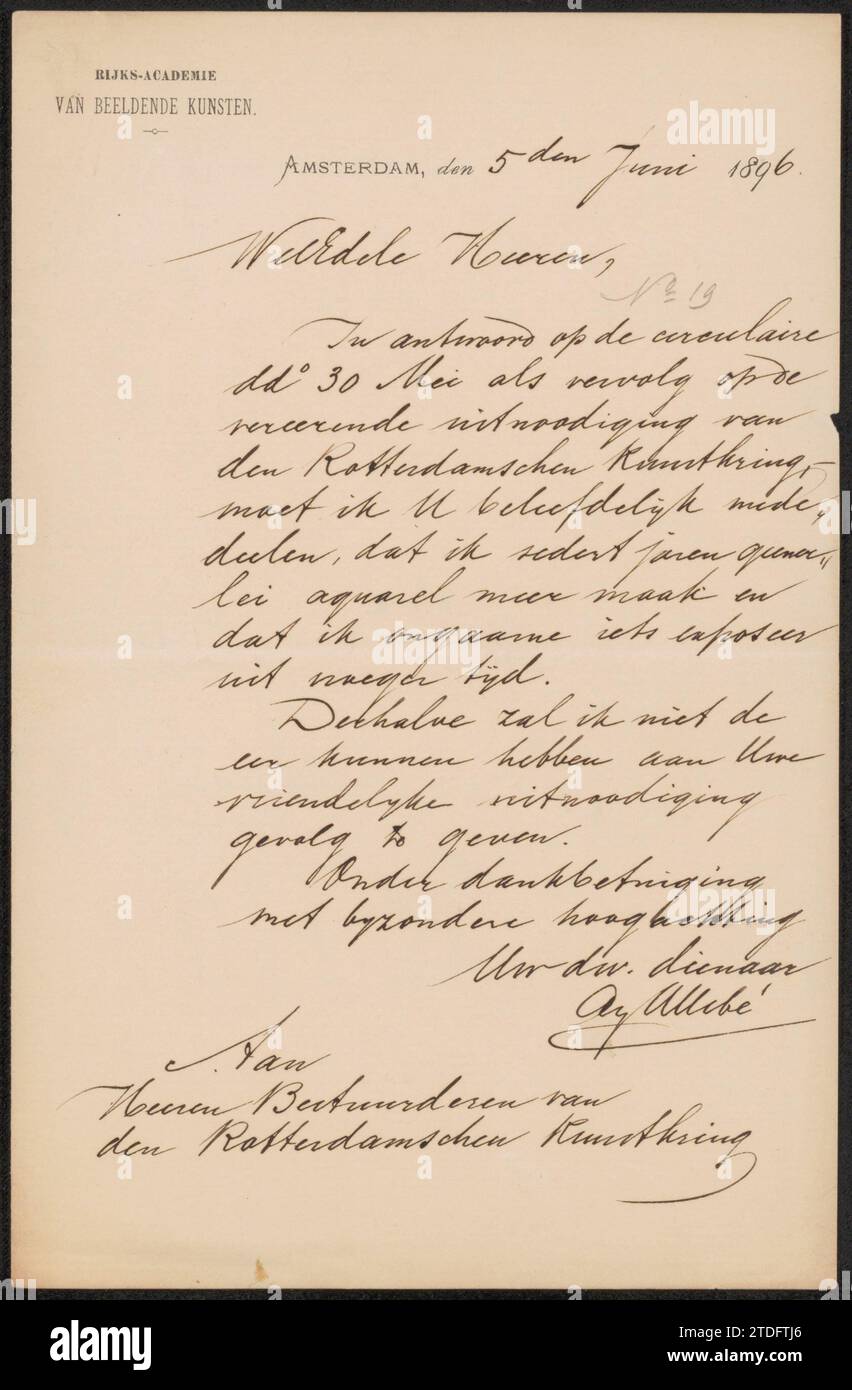 RIJKS-ACADEMIE
VAN BEELDENDE KUNSTEN.
AMSTERDAM, den 5den Juni 1896.
WelEdele Heeren,
No 19
In antwoord op de circulaire
ddo 30 Mei als vervolg op de
vereerende uitnoodiging van
den Rotterdamschen Kunstkring,-
moet ik U beleefdelijk mede„
deelen, dat ik sedert jaren geener„
lei aquarel meer maak en
dat ik ongaarne iets exposeer
uit vroeger tijd.
Derhalve zal ik niet de
eer kunnen hebben aan Uwe
vriendelijke uitnoodiging
gevolg te geven.
Onder dankbetuiging
met byzondere hoogachting
Uw dw. dienaar
Allebé
Aan
Heeren Bestuurderen van
den Rotterdamschen Kunstkring
alamy
Image ID: 2TDFTJ6
www.alamy.com